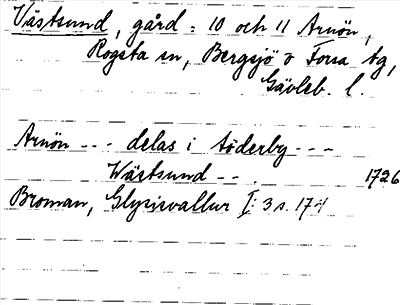 Västsund, gård: 10 och 11 Arnön,
Rogsta sn, Bergsjö o Forsa tg,
Gävleb. l.
Arnön --- delas i Söderby ---
Wästsund --. 1726
Broman, Glysisvallur I: 3 s. 174